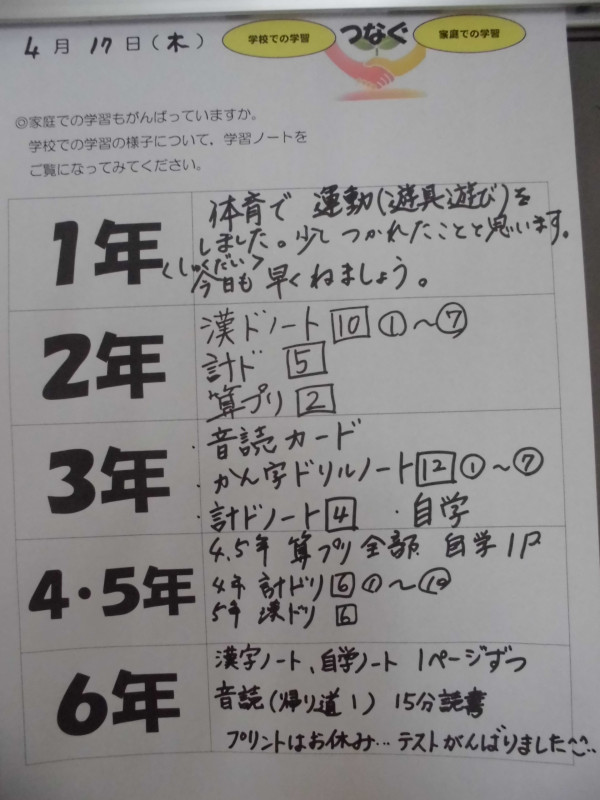 4月17日(木)
学校での学習
つなぐ
家庭での学習
◎家庭での学習もがんばっていますか。
学校での学習の様子について、学習ノートを
ご覧になってみてください。
1年
体育で 運動(遊具遊び)を
しました。少しつかれたことと思います。
<しゅくだい>
今日も早くねましょう。
2年
漢ドノート 10 ①~⑦
計ド 5
算プリ 2
3年
・音読カード
・かん字ドリルノート 12 ①~⑦
・計ドノート 4 ・自学
4・5年
4,5年 算プリ全部 自学1P
4年 計ドリ 6 ①~⑩
5年 漢ドリ 6
6年
漢字ノート、自学ノート 1ページずつ
音読(帰り道1) 15分読書
プリントはお休み…テストがんばりました